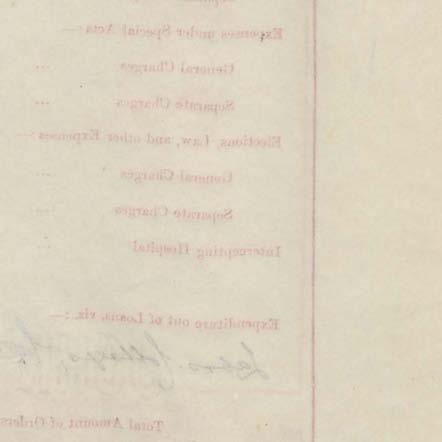 Expenses under Special Acts:—
General Charges ...
Separate Charges ...
Elections, Law, and other Expenses:—
General Charges ...
Separate Charges ...
Intercepting Hospital
Expenditure out of Loans, viz.:—
Total Amount of Orders